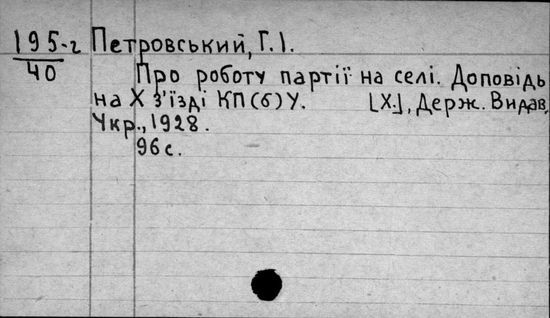 195-г Петровський, Г.І.
40 Про роботу партії на селі. Доповідь
на X з'їзді КП(б)У. [Х.], Держ. Видав,
Укр., 1928.
96 с.